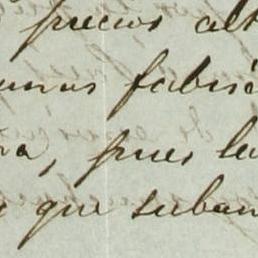 precios alt
unas fabric
ra, pues la
que suban